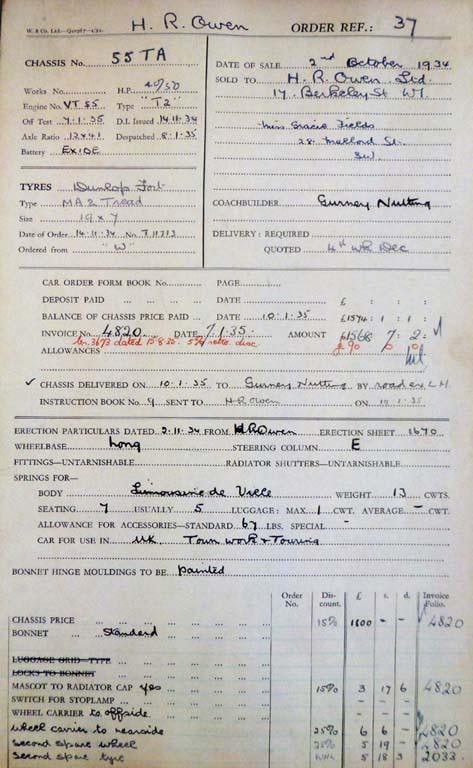 W. & Co. Ltd.
H. R. Owen
ORDER REF.: 37
CHASSIS No. 55 TA
DATE OF SALE 2nd October 1934
SOLD TO H. R. Owen Ltd.
17, Berkeley St W1.
Works No. H.P. 40/50
Engine No. VT 55 Type "T2"
Off Test 7.1.35 D.I. Issued 14.11.34
Axle Ratio 12 x 41 Despatched 8.1.35
Battery EXIDE
Miss Gracie Fields
28 St.
S.W.
TYRES Dunlop Fort
Type Tread
Size 19 x 7
Date of Order 14.11.34 No. T 11713
Ordered from "W"
COACHBUILDER Gurney Nutting
DELIVERY: REQUIRED
QUOTED 4th wk Dec
CAR ORDER FORM BOOK No. PAGE
DEPOSIT PAID DATE £ : :
BALANCE OF CHASSIS PRICE PAID DATE 10.1.35 £1574 : 1 : 1
INVOICE No. 4820 DATE 7.1.35. AMOUNT £1568 7 2
3673 dated 15.8.35 5% retro. disc
ALLOWANCES £90 0 0
Nil
✓ CHASSIS DELIVERED ON 10.1.35 TO Gurney Nutting BY road ex L.H.
INSTRUCTION BOOK No. 9 SENT TO H.R. Owen ON 10.1.35
ERECTION PARTICULARS DATED 2.11.34 FROM H.R. Owen ERECTION SHEET 1670
WHEELBASE Long STEERING COLUMN E
FITTINGS—UNTARNISHABLE RADIATOR SHUTTERS—UNTARNISHABLE
SPRINGS FOR—
BODY Limousine de Ville WEIGHT 13 CWTS.
SEATING 7 USUALLY 5 LUGGAGE: MAX. 1 CWT. AVERAGE - CWT.
ALLOWANCE FOR ACCESSORIES—STANDARD 67 LBS. SPECIAL -
CAR FOR USE IN U.K. Town work & Touring
BONNET HINGE MOULDINGS TO BE painted
Order No. Discount. £ s. d. Invoice Folio.
CHASSIS PRICE 15% 1800 - - 4820
BONNET Standard
LUGGAGE GRID—TYPE
LOCKS TO BONNET
MASCOT TO RADIATOR CAP yes 15% 3 17 6 4820
SWITCH FOR STOPLAMP
WHEEL CARRIER to offside
Wheel carrier to nearside 25% 6 6 - 4820
Second spare wheel 25% 5 19 - 4820
Second spare tyre 5 18 3 2033